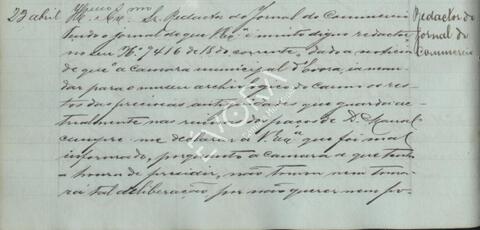 23 abril
Illmo e Exmo Sr. Redactor do Jornal do Commercio
Redactor do
Jornal do
Commercio
Tendo o jornal de que V. Exª é muito digno redactor
no seu Nº 7416 de 18 do corrente, dado a noticia
de que a camara municipal d'Evora, ia man-
dar para o museu archeologico do Carmo os res-
tos das preciosas antiguidades que guarda ac-
tualmente nas ruinas do paço de D. Manoel
cumpre-me declarar a V. Exª que foi mal
informado, porquanto a camara a que tenho
a honra de presidir, não tomou nem toma-
rá tal deliberação, por não querer nem po-
EVORA